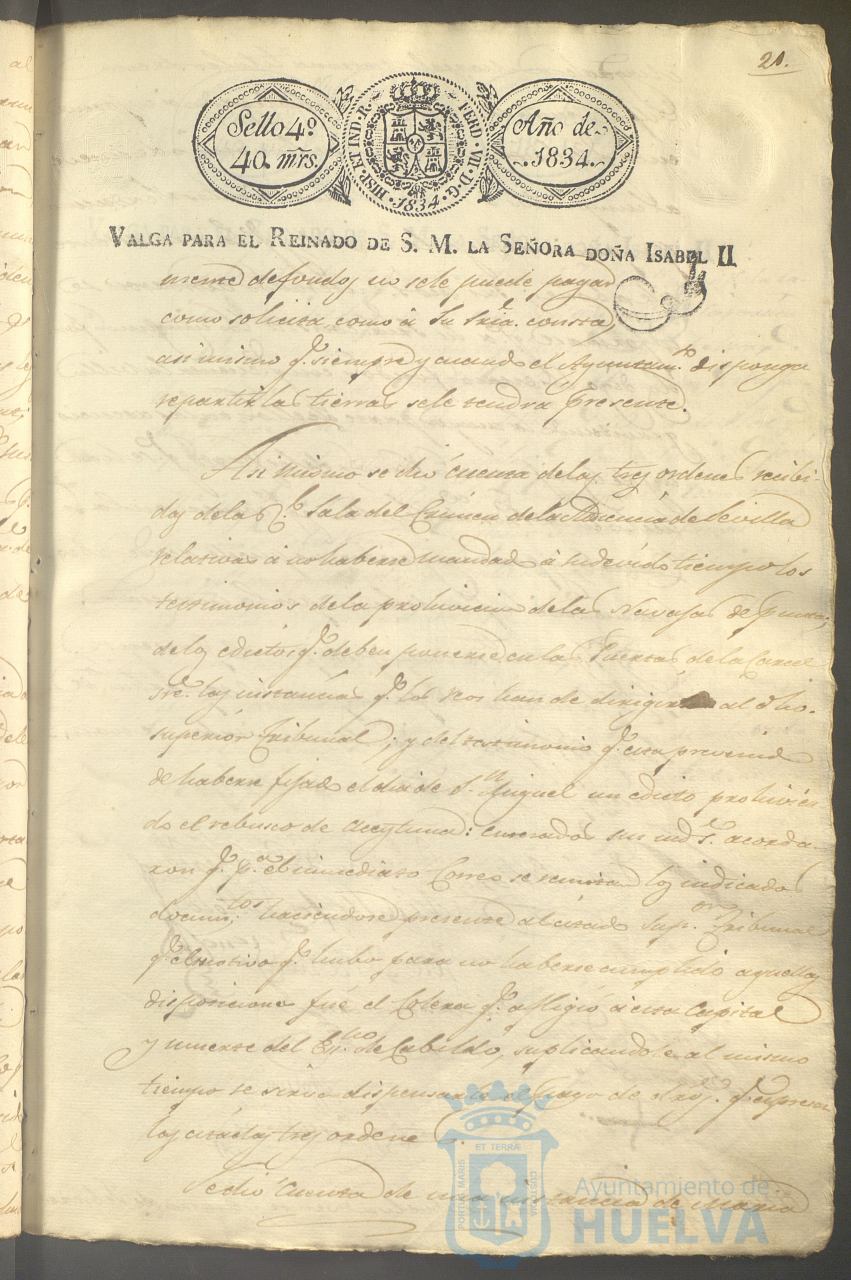 21.
Sello 4º
40. mrs.
HISP. ET IND. R. FERD. VII. D. G.
1834
Año de
1834.
VALGA PARA EL REINADO DE S. M. LA SEÑORA DOÑA ISABEL II
de fondos no se le puede pagar
como solicita, como á Su Sria. consta,
asi mismo q. siempre y cuando el Ayuntam.to disponga
repartir las tierras se le tendrá presente.
Asi mismo se dió cuenta de las tres ordenes recibi-
das de la R.l Sala del Crimen de la Audiencia de Sevilla
relativas á no haberse mandado á su devido tiempo los
testimonios de la prohivicion de las Navajas de punta;
de los edictos q. deben ponerse en las Puertas de la Carcel
sre. las instancias q. los reos han de dirigir al dho.
superior Tribunal; y del testimonio q. esta prevenido
de haberse fijado el dia de S.n Miguel un edicto prohivien-
do el rebusco de Aceytuna: enterados sus mds. acorda-
ron q. p.r el inmediato Correo se remitan los indicados
docum.tos haciendose presente al citado Sup.or Tribunal
q. el motivo q. hubo para no haberse cumplido aquellas
disposiciones fué el Colera q. afligió á esta Capital
y muerte del Es.no de Cabildo, suplicandole al mismo
tiempo se sirva dispensarle el pago de q. expresan
las citadas tres ordenes.
Se dió cuenta de una instancia de Mario
ET TERRÆ
PORTUS MARIS
CUSTODIA
Ayuntamiento de
HUELVA